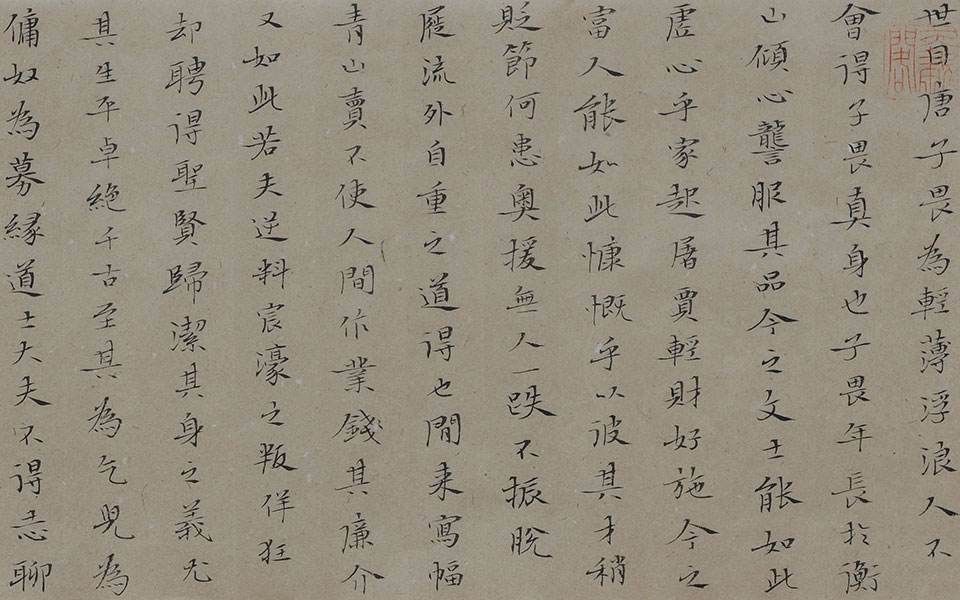 世目唐子畏為輕薄浮浪人不
會得子畏真身也子畏年長於衡
山傾心讋服其品今之文士能如此
虛心乎家起屠賈輕財好施今之
富人能如此慷慨乎以彼其才稍
貶節何患奧援無人一跌不振脫
屣流外自重之道得也閒來寫幅
青山賣不使人間作業錢其廉介
又如此若夫逆料宸濠之叛佯狂
却聘得聖賢歸潔其身之義尤
其生平卓絕千古至其為乞兒為
傭奴為募緣道士大夫不得志聊